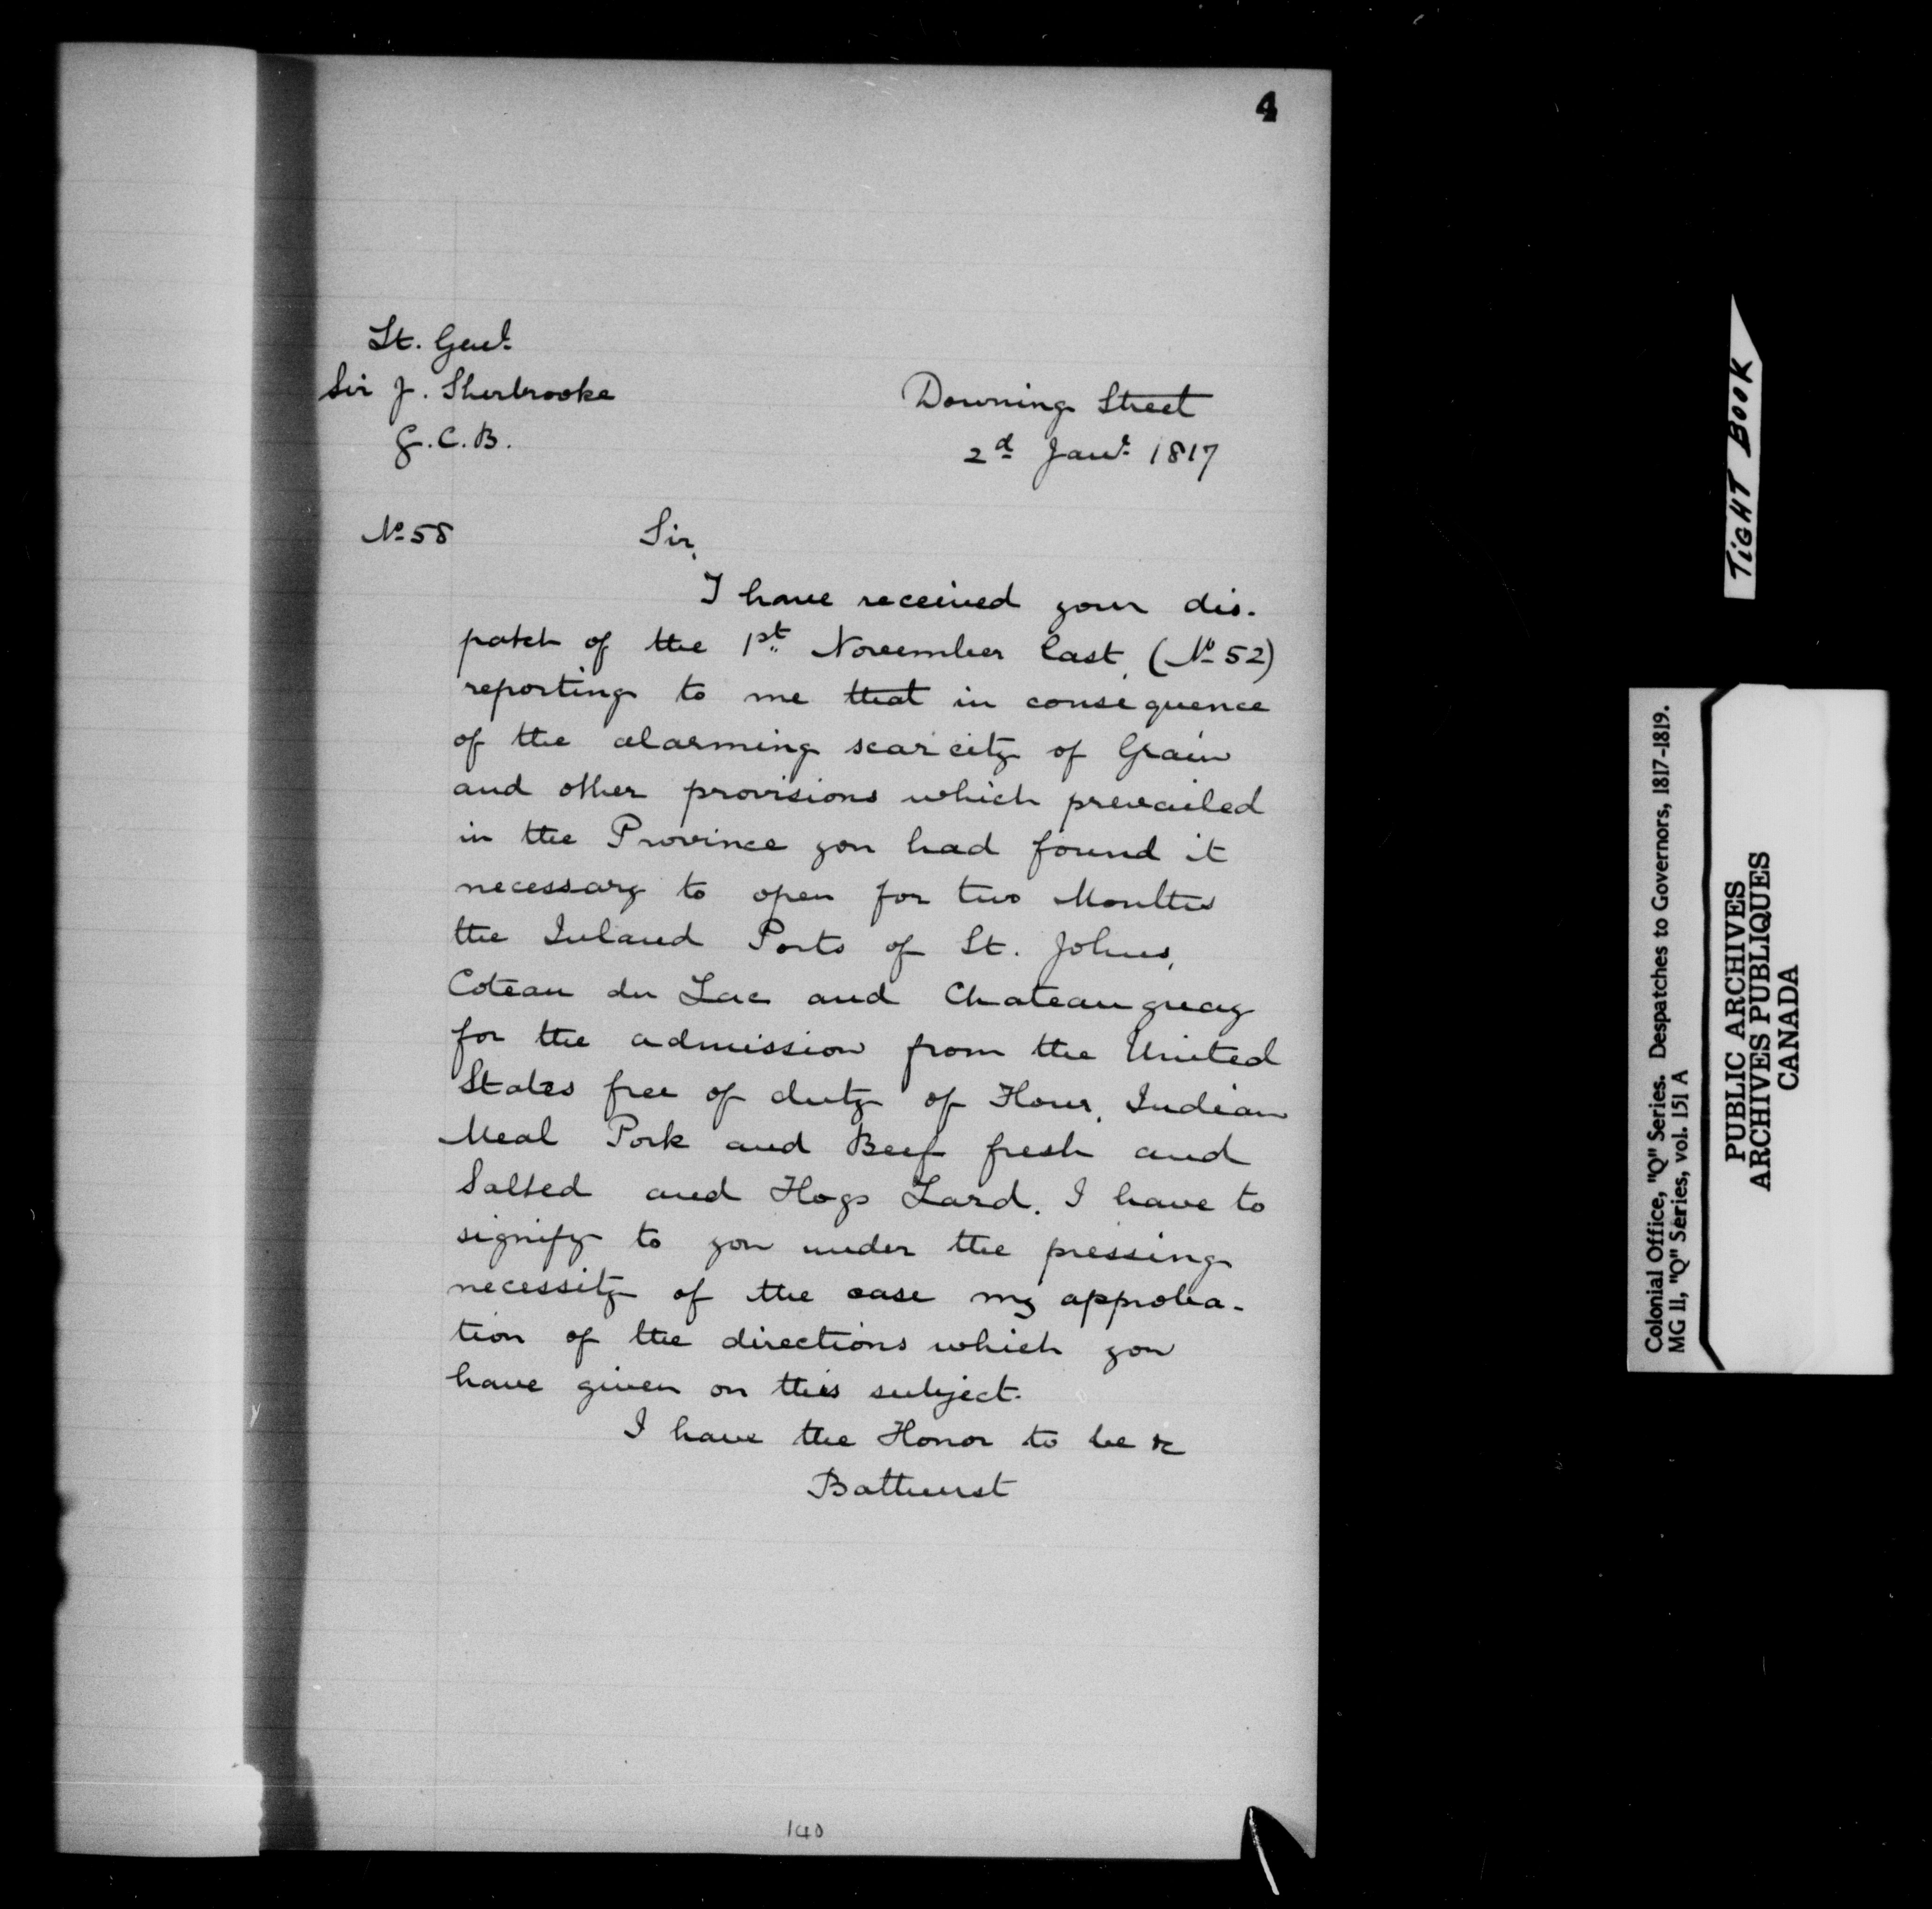 4
Lt. Genl.
Sir J. Sherbrooke
G.C.B.
Downing Street
2d Jany. 1817
No 58
Sir,
I have received your dis-
patch of the 1st November last, (No 52)
reporting to me that in consequence
of the alarming scarcity of Grain
and other provisions which prevailed
in the Province you had found it
necessary to open for two Months
the Inland Ports of St. Johns,
Coteau du Lac and Chateauguay
for the admission from the United
States free of duty of Flour, Indian
Meal Pork and Beef fresh and
Salted and Hogs Lard. I have to
signify to you under the pressing
necessity of the case my approba-
tion of the directions which you
have given on this subject.
I have the Honor to be &c
Bathurst
140
TiGHT BOOK
Colonial Office, "Q" Series. Despatches to Governors, 1817-1819.
MG 11, "Q" Series, vol. 151 A
PUBLIC ARCHIVES
ARCHIVES PUBLIQUES
CANADA